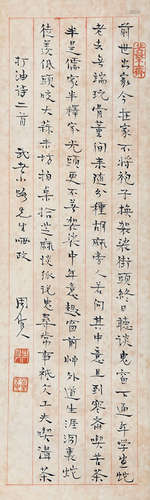 前世出家今在家不將袍子換袈裟街頭終日聽談鬼窗下通年學画蛇
老去無端玩骨董閒来隨分種胡麻旁人若問其中意且到寒齋喫苦茶
半是儒家半釋家光頭更不著袈裟中年意趣窗前艸外道生涯洞裏蛇
徒羨低頭咬大蒜未妨拍桌拾芝麻談狐說鬼尋常事祇欠工夫喫講茶
打油詩二首 武者小路先生哂政
周作人